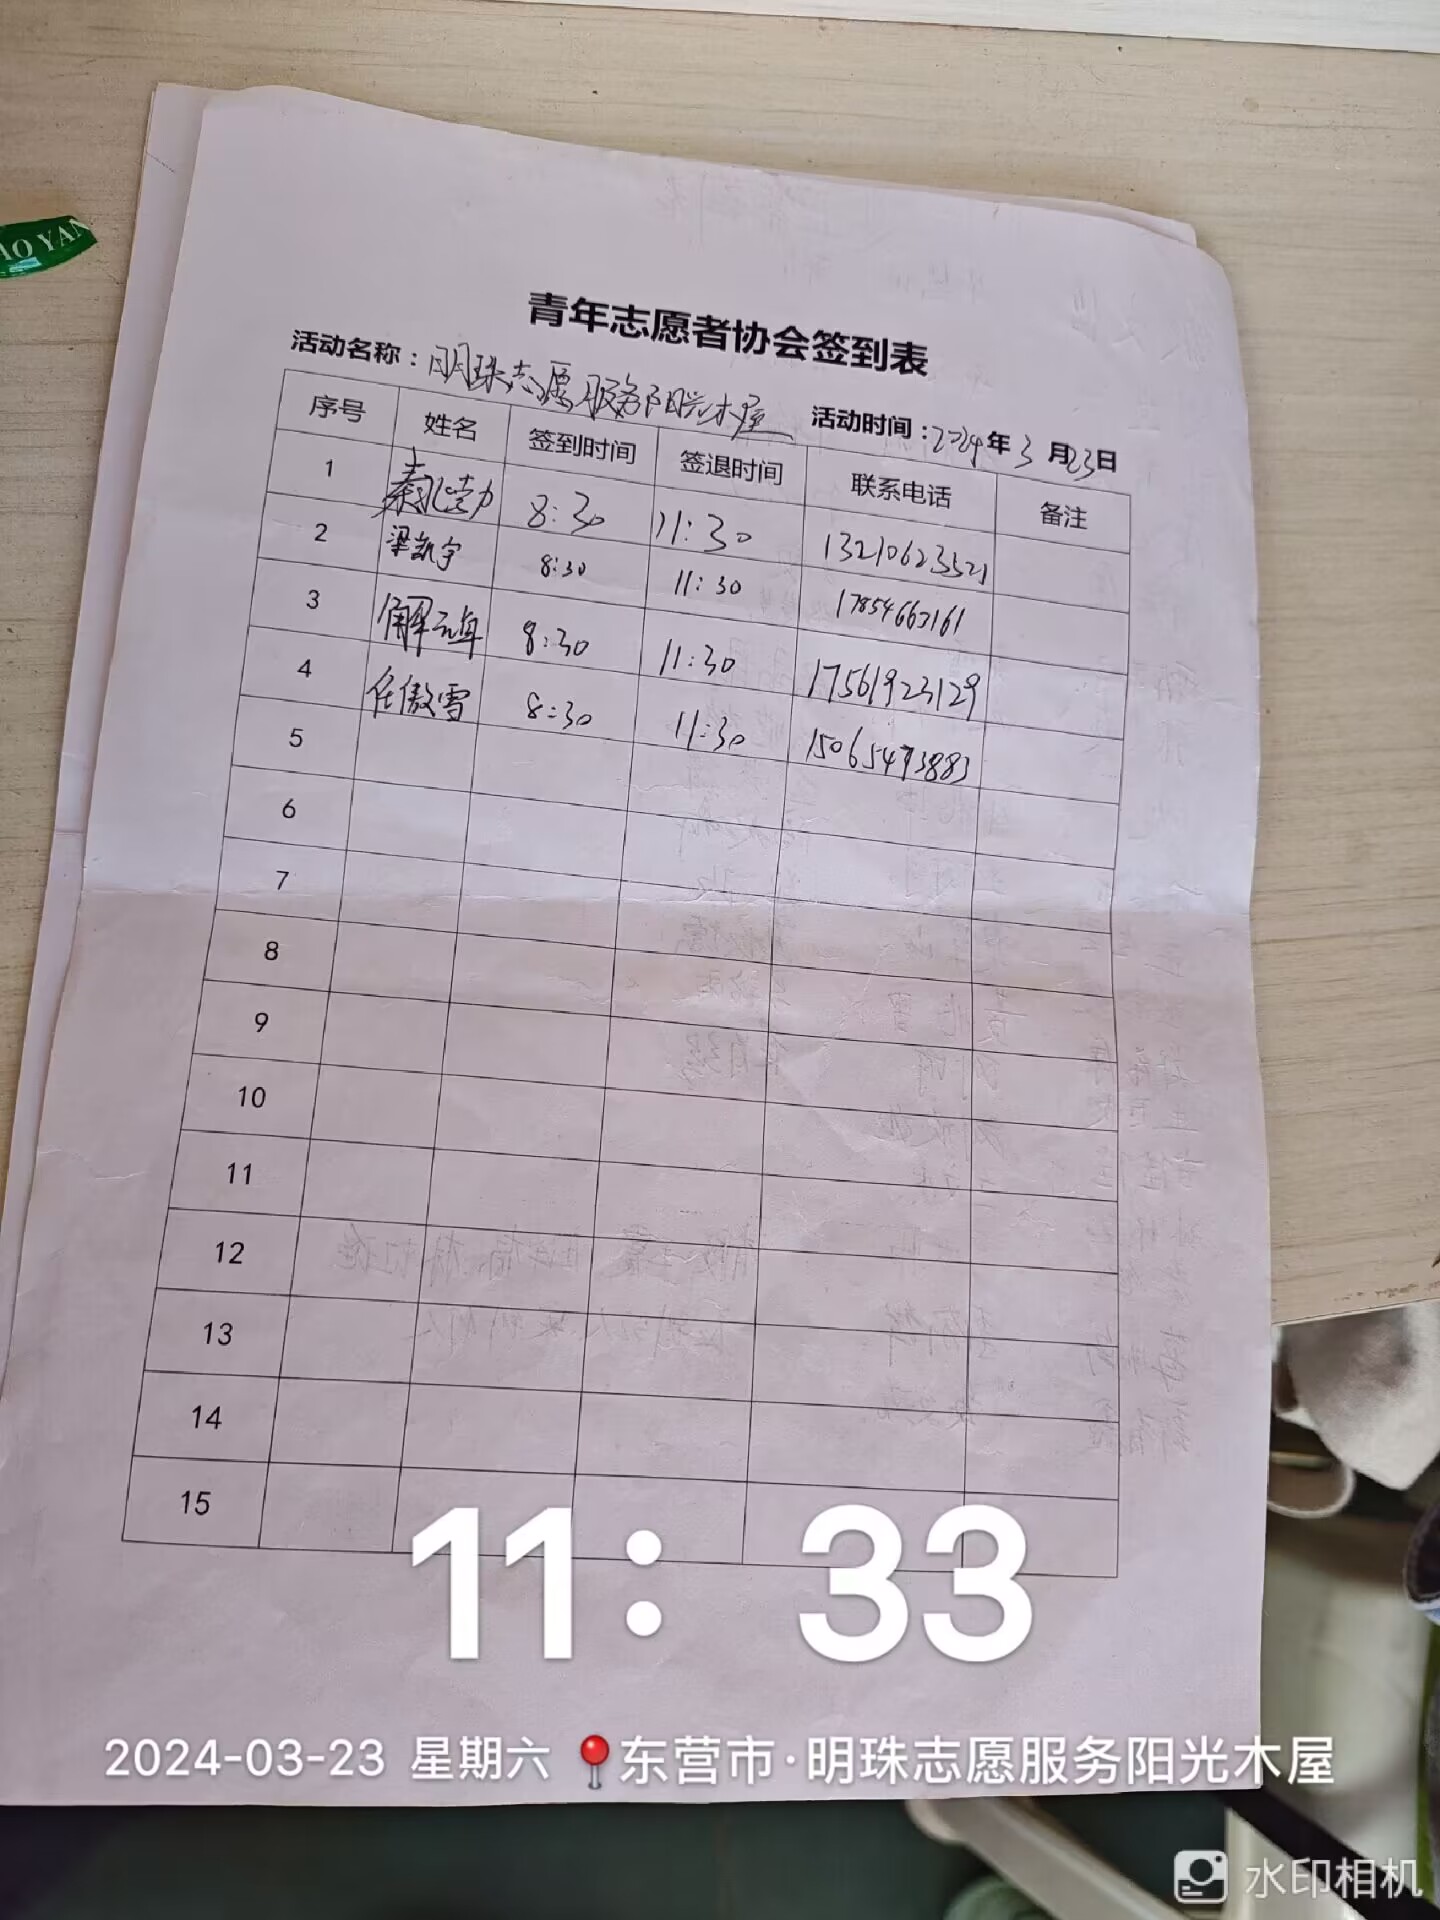 IO YAN
青年志愿者协会签到表
活动名称：明珠志愿服务阳光木屋 活动时间：2024年3月23日
序号 姓名 签到时间 签退时间 联系电话 备注
1 秦 8:30 11:30 13210623521
2 梁凯宇 8:30 11:30 17854667161
3 解 8:30 11:30 17561923129
4 任傲雪 8:30 11:30 15065473883
5
6
7
8
9
10
11
12
13
14
15
11：33
2024-03-23 星期六 东营市·明珠志愿服务阳光木屋
水印相机